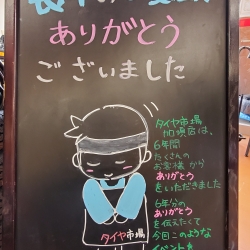 ありがとう
ございました
タイヤ市場
加須店は、
6年間
たくさんの
お客様から
ありがとう
をいただきました
6年分の
ありがとう
を伝えたくて
今回このような
イベント
タイヤ市場